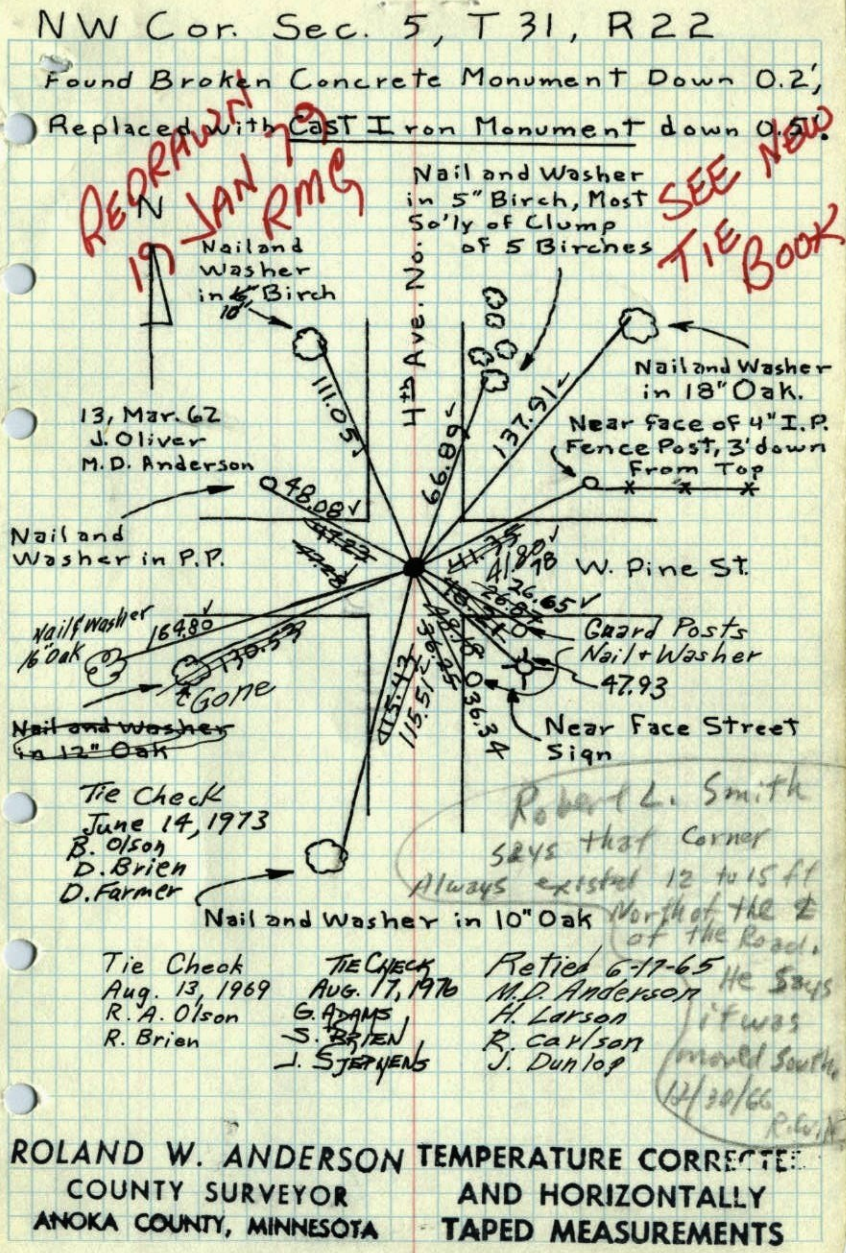 NW Cor. Sec. 5, T31, R22
Found Broken Concrete Monument Down 0.2',
Replaced with Cast Iron Monument down 0.5'.
REDRAWN
19 JAN 79
RMG
SEE NEW
TIE
BOOK
N
Nail and Washer
in 5" Birch, Most
So'ly of Clump
of 5 Birches
Nail and
Washer
in 10" Birch
4th Ave. No.
Nail and Washer
in 18" Oak.
Near Face of 4" I.P.
Fence Post, 3' down
From Top
13, Mar. 62
J. Oliver
M.D. Anderson
111.05
66.89
137.91
48.08
47.23
41.75
41.80
78
26.65
Nail and
Washer in P.P.
W. Pine St.
Nail & Washer
16" Oak
164.80
130.53
Gone
Nail and Washer
in 12" Oak
115.42
115.51
48.18
36.25
36.34
Guard Posts
Nail + Washer
47.93
Near Face Street
Sign
Tie Check
June 14, 1973
B. Olson
D. Brien
D. Farmer
Nail and Washer in 10" Oak
Robert L. Smith
says that Corner
Always existed 12 to 15 ft
North of the ℄
of the Road.
He says
it was
moved South.
12/30/66
Tie Check
Aug. 13, 1969
R. A. Olson
R. Brien
TIE CHECK
AUG. 17, 1976
G. ADAMS
S. BRIEN
J. STEPHENS
Retied 6-17-65
M.D. Anderson
H. Larson
R. Carlson
J. Dunlop
ROLAND W. ANDERSON
COUNTY SURVEYOR
ANOKA COUNTY, MINNESOTA
TEMPERATURE CORRECTED
AND HORIZONTALLY
TAPED MEASUREMENTS